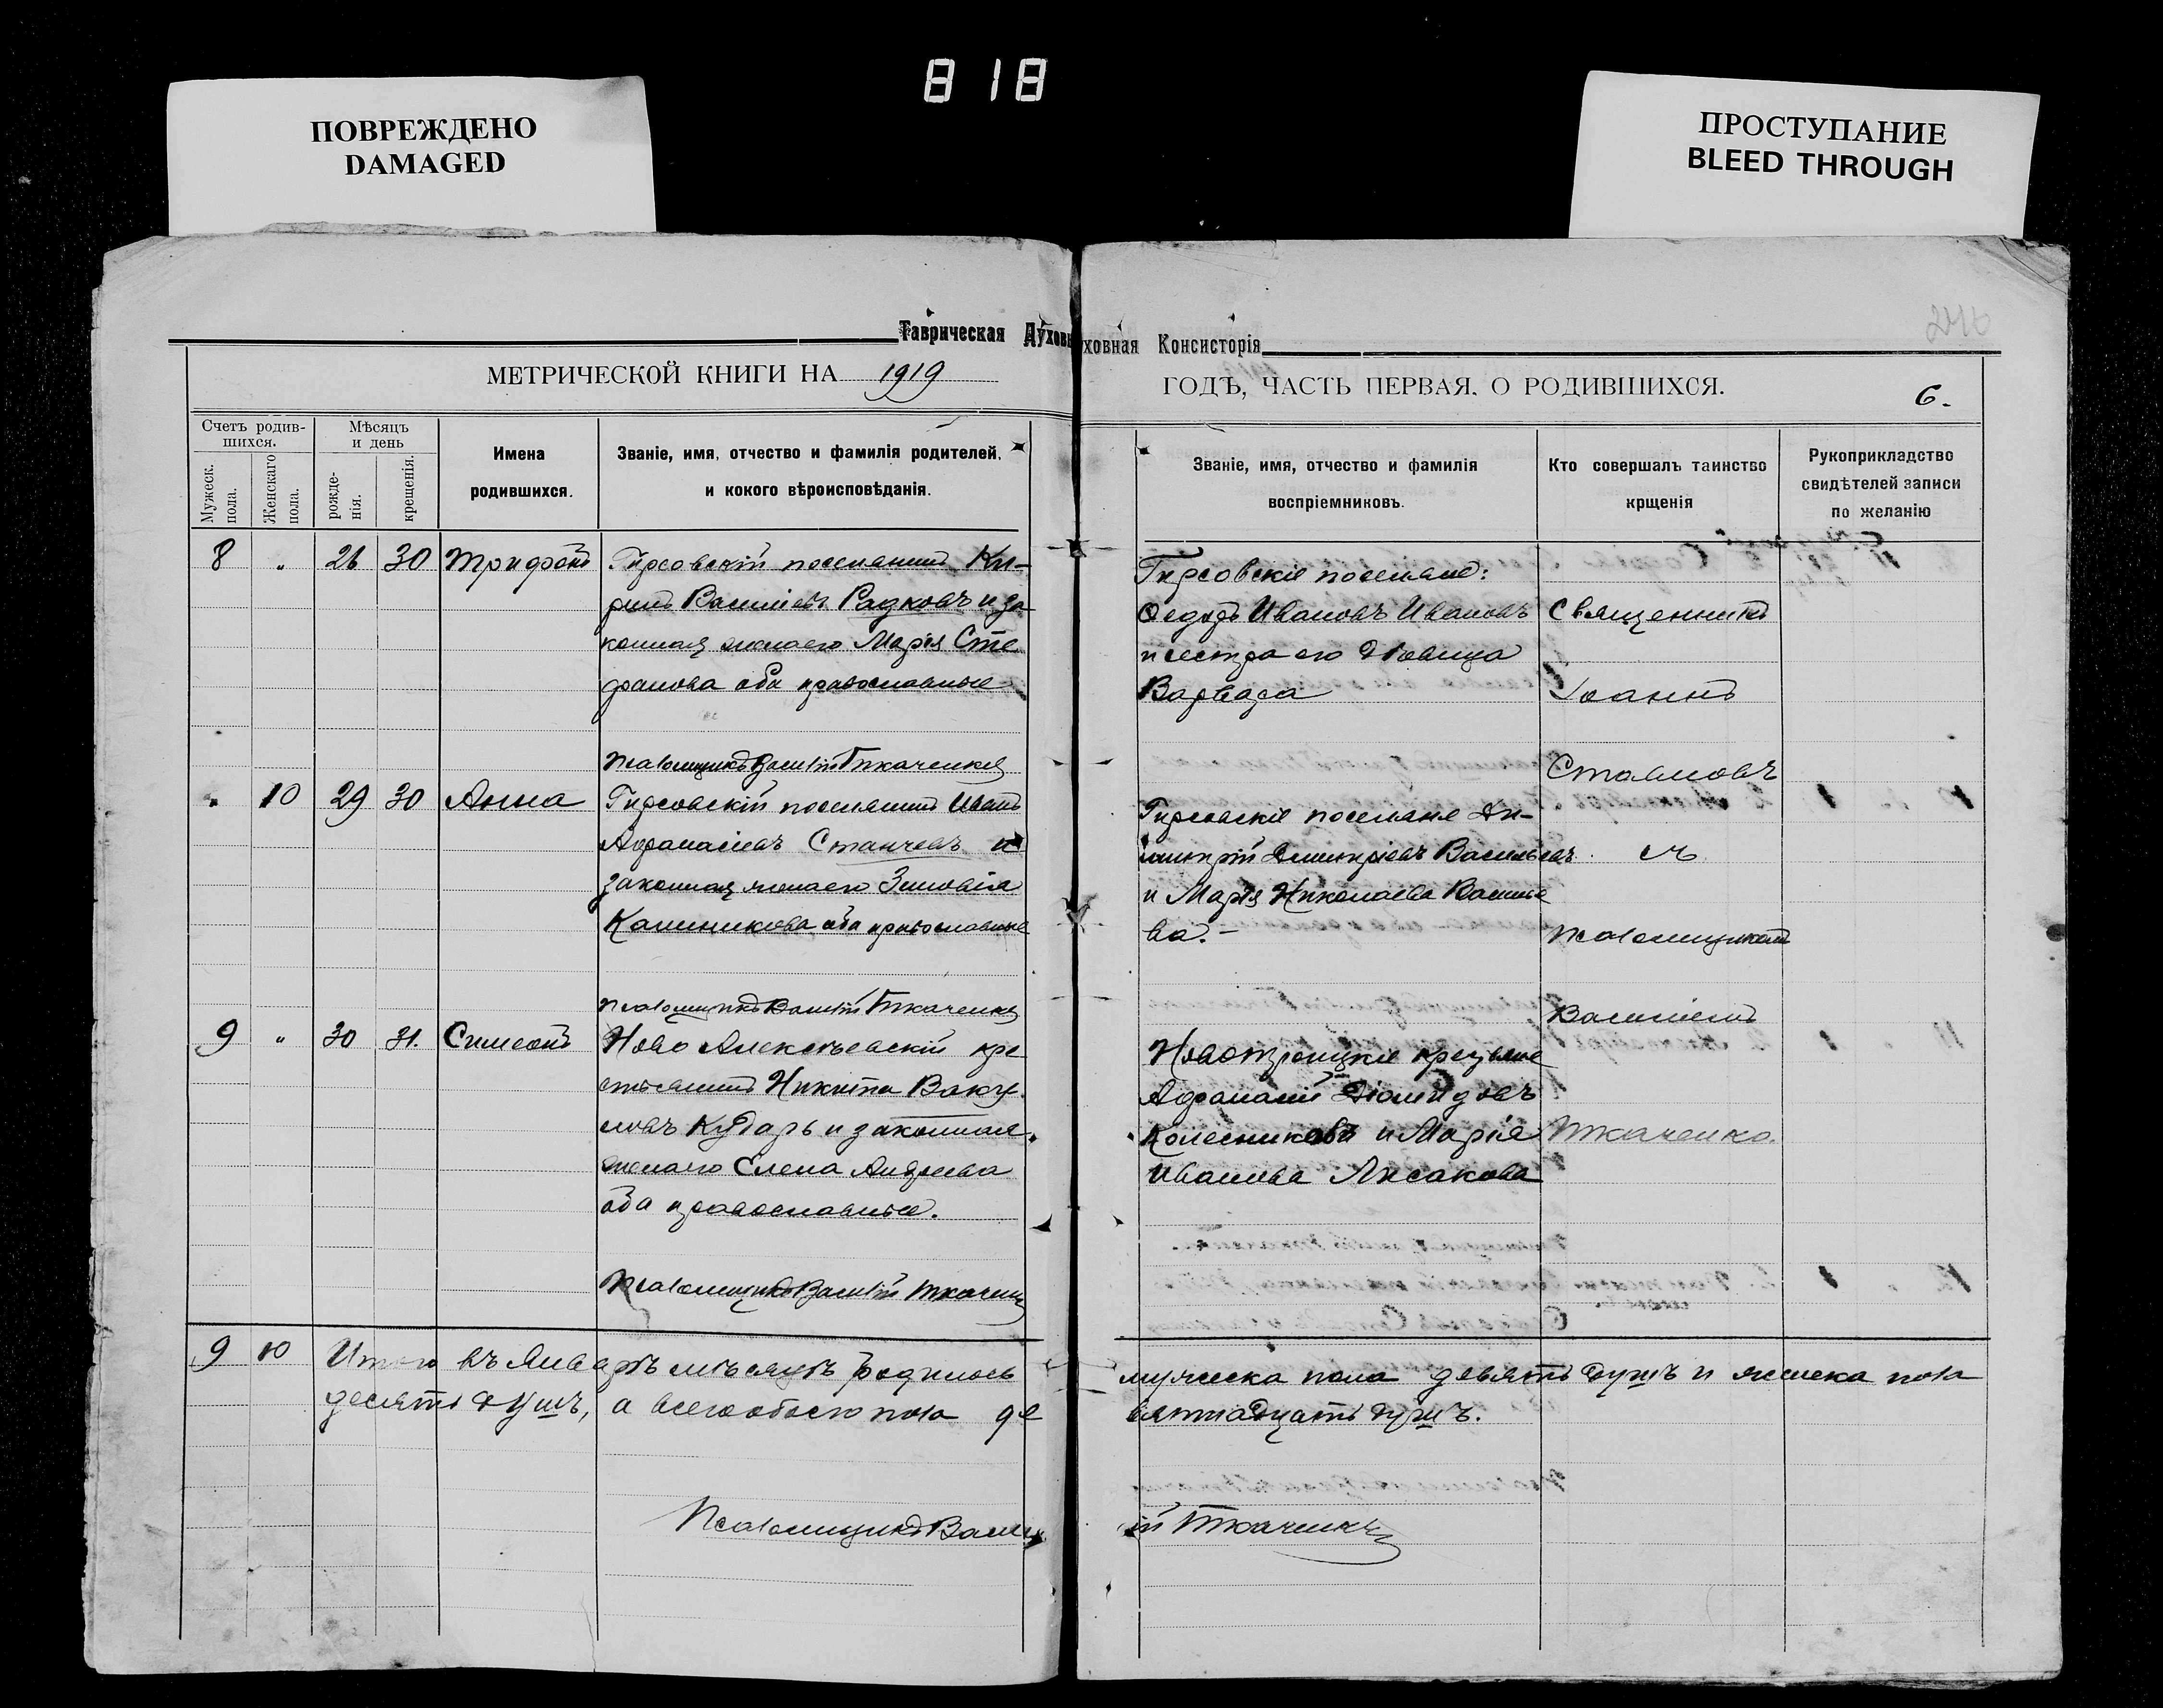 818
ПОВРЕЖДЕНО
DAMAGED
ПРОСТУПАНИЕ
BLEED THROUGH
Таврическая Духовн
уховная Консисторія
МЕТРИЧЕСКОЙ КНИГИ НА 1919
ГОДЪ, ЧАСТЬ ПЕРВАЯ, О РОДИВШИХСЯ.
246
6.
Счетъ родив-
шихся.
Мужеск.
пола.
Женскаго
пола.
Мѣсяцъ
и день
рожде-
нія.
крещенія.
Имена
родившихся.
Званіе, имя, отчество и фамилія родителей,
и кокого вѣроисповѣданія.
Званіе, имя, отчество и фамилія
воспріемниковъ.
Кто совершалъ таинство
крщенія
Рукоприкладство
свидѣтелей записи
по желанію
8 " 26 30 Трифонъ
Гирсовскій поселянинъ Ки-
рилъ Васильевъ Радковъ и за
конная жена его Марія Сте
фанова оба православные
Псаломщикъ Василій Ткаченко
Гирсовскіе поселяне:
Ѳедоръ Ивановъ Ивановъ
и сестра его дѣвица
Варвара
Священникъ
Іоаннъ
Стаиловъ
съ
псаломщикомъ
Василіемъ
Ткаченко.
" 10 29 30 Анна
Гирсовскій поселянинъ Иванъ
Афанасіевъ Станчевъ и
законная жена его Зиновія
Калиникова оба православные
Псаломщикъ Василій Ткаченко
Гирсовскіе поселяне Ди-
митрій Димитріевъ Васильевъ
и Марія Николаева Василье
ва.-
9 " 30 31. Симеонъ
Ново Алексѣевскій кре
стьянинъ Никита Ваку
ловъ Кубарь и законная
жена его Елена Андреева
оба православные.
Псаломщикъ Василій Ткаченко
Новотроицкіе крестьяне
Афанасій Діомидовъ
Колесниковъ и Марія
Иванова Лисакова
9 10 Итого въ Январѣ мѣсяцѣ родилось
мужеска пола девять душъ и женска пола
десять душъ, а всего обоего пола де
вятнадцать душъ.
Псаломщикъ Васил
ій Ткаченко